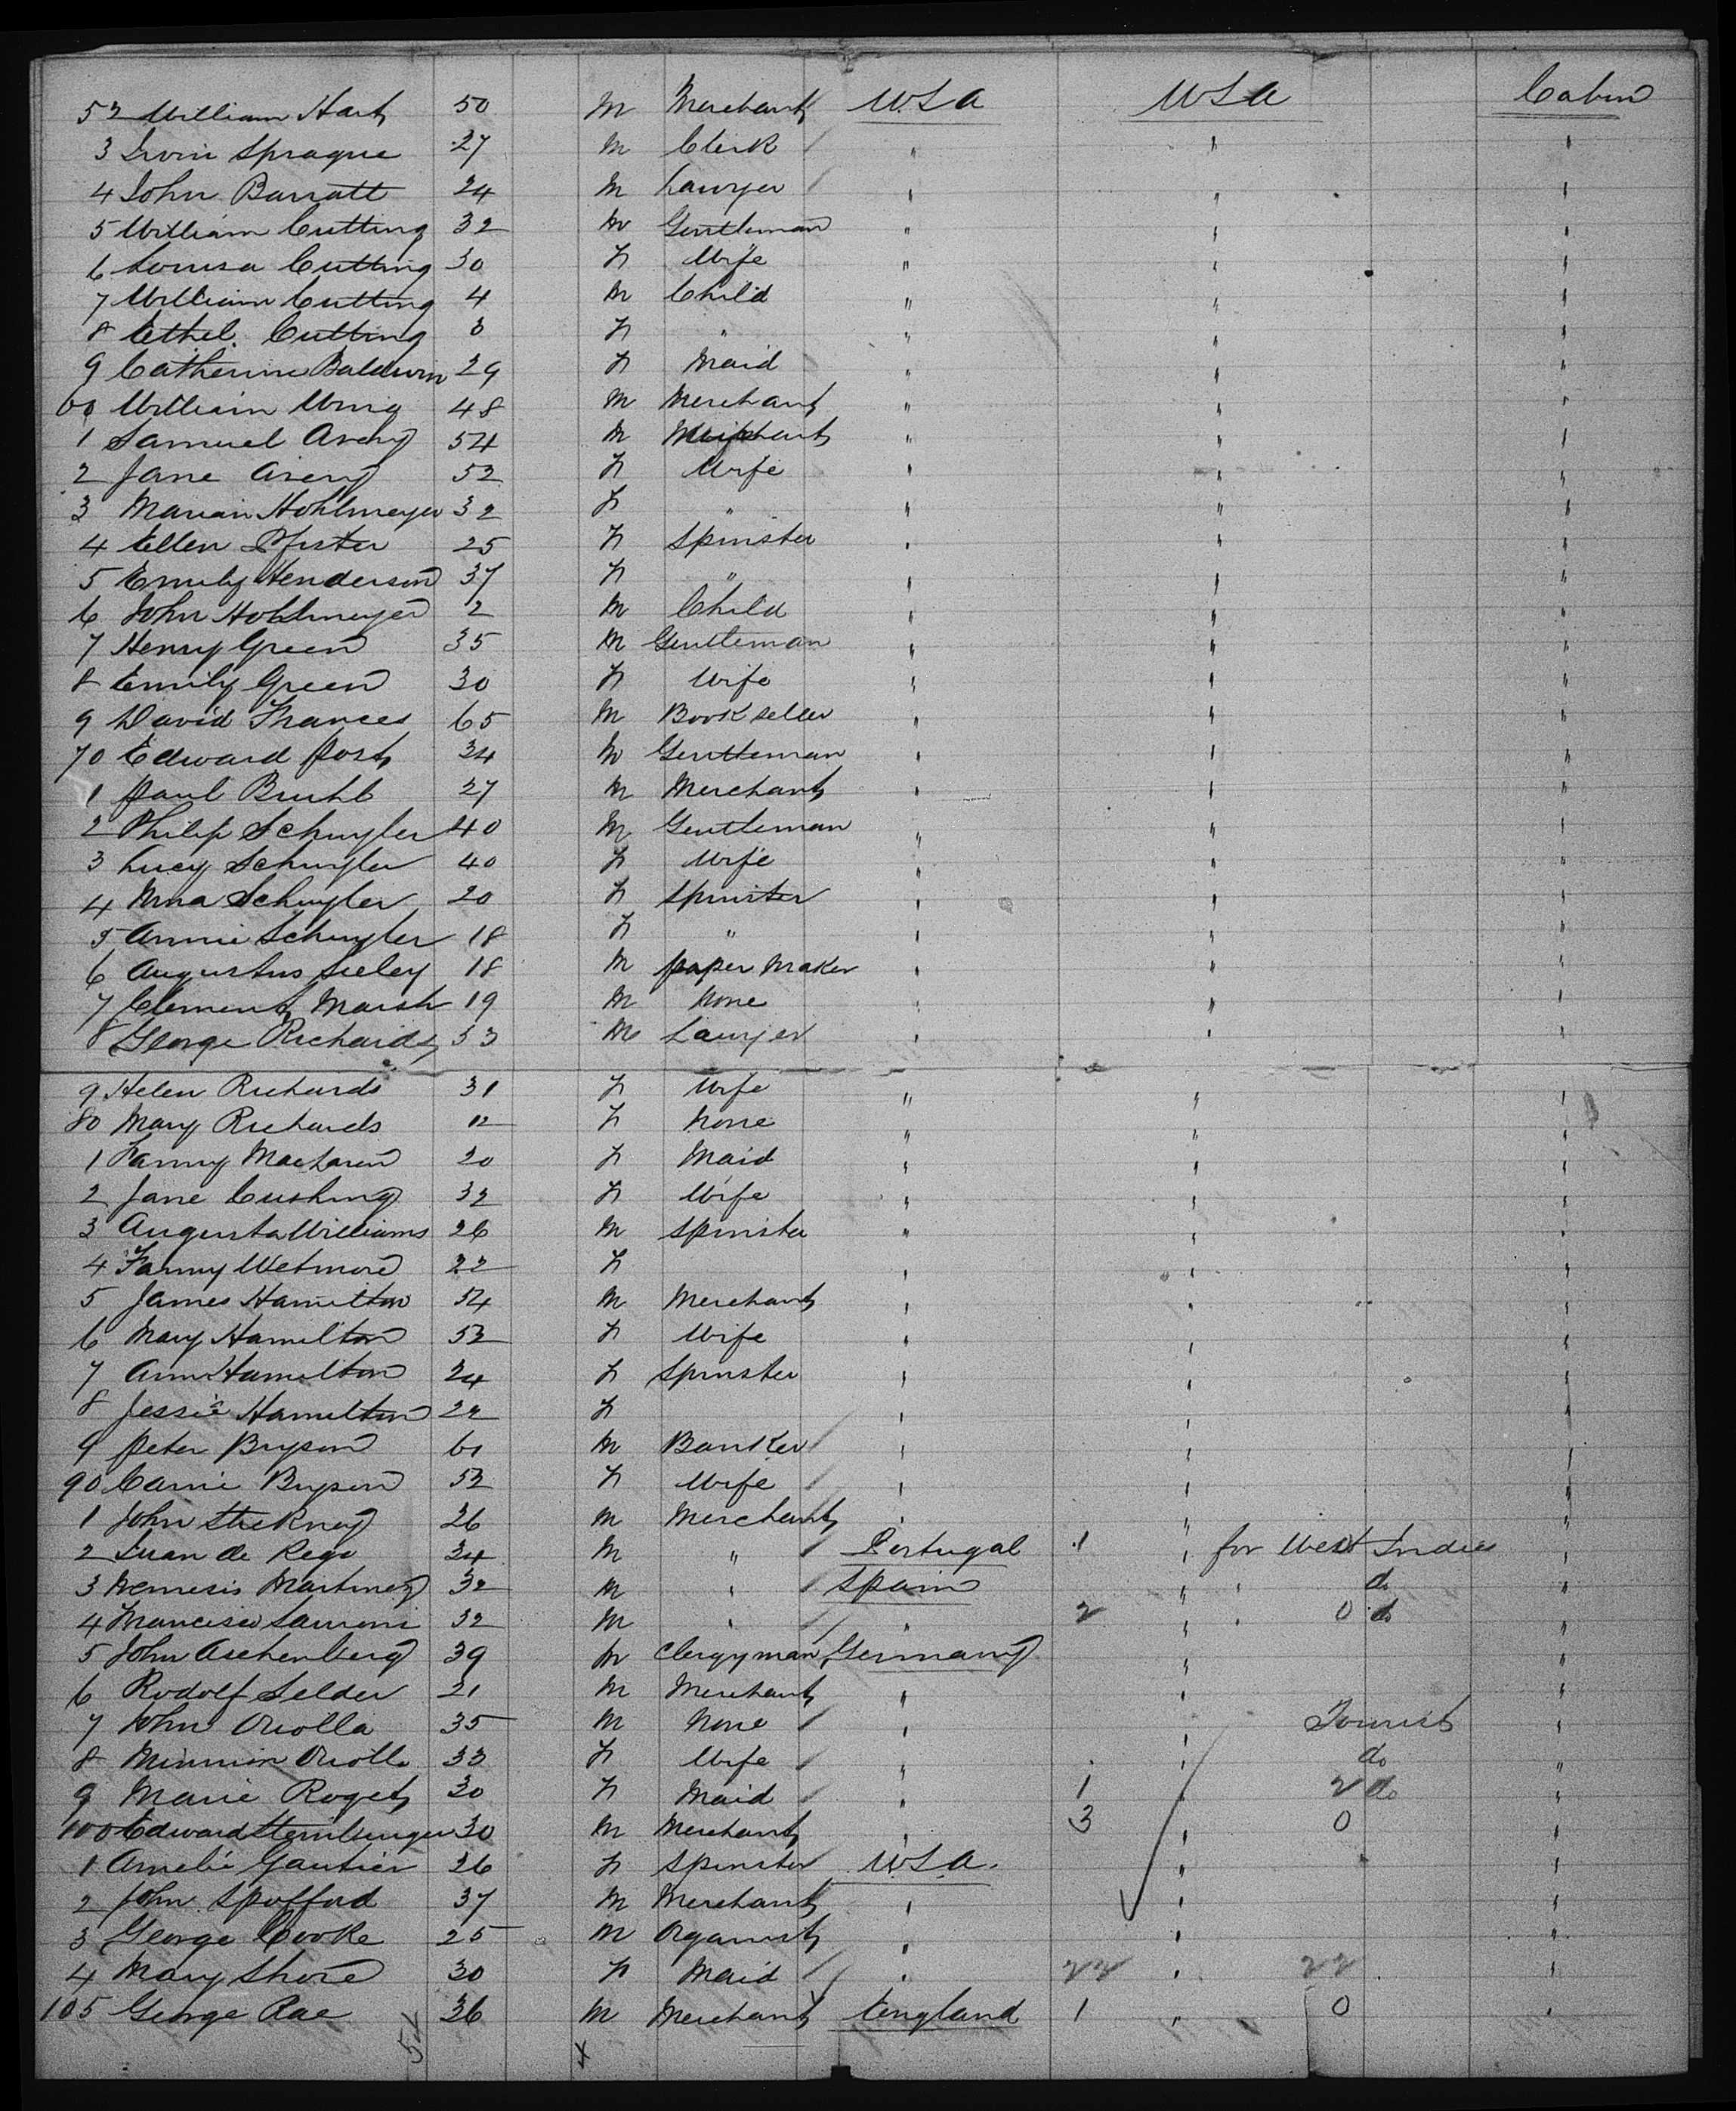 52 William Hart 50 M Merchant U.S.A U.S.A Cabin
3 Irvin Sprague 27 M Clerk " " "
4 John Barratt 24 M Lawyer " " "
5 William Cutting 32 M Gentleman " " "
6 Louisa Cutting 30 F Wife " " "
7 William Cutting 4 M Child " " "
8 Ethel Cutting 3 F " " " "
9 Catherine Baldwin 29 F Maid " " "
60 William Wing 48 M Merchant " " "
1 Samuel Avery 54 M Merchant " " "
2 Jane Avery 52 F Wife " " "
3 Marian Hohlmeyer 32 F " " " "
4 Ellen Pfister 25 F Spinster " " "
5 Emily Henderson 37 F " " " "
6 John Hohlmeyer 2 M Child " " "
7 Henry Green 35 M Gentleman " " "
8 Emily Green 30 F Wife " " "
9 David Frances 65 M Book seller " " "
70 Edward Post 34 M Gentleman " " "
1 Paul Bruhl 27 M Merchant " " "
2 Philip Schuyler 40 M Gentleman " " "
3 Lucy Schuyler 40 F Wife " " "
4 Nina Schuyler 20 F Spinster " " "
5 Annie Schuyler 18 F " " " "
6 Augustus Seeley 18 M Paper Maker " " "
7 Clement Marsh 19 M None " " "
8 George Richards 53 M Lawyer " " "
9 Helen Richards 31 F Wife " " "
80 Mary Richards 12 F None " " "
1 Fanny MacLaren 20 F Maid " " "
2 Jane Cushing 32 F Wife " " "
3 Augusta Williams 26 M Spinster " " "
4 Fanny Wetmore 22 F " " "
5 James Hamilton 54 M Merchant " " "
6 Mary Hamilton 52 F Wife " " "
7 Ann Hamilton 24 F Spinster " " "
8 Jessie Hamilton 22 F " " "
9 Peter Bryson 61 M Banker " " "
90 Carrie Bryson 52 F Wife " " "
1 John Stickney 26 M Merchant " " "
2 Juan de Rego 34 M " Portugal 1 " for West Indies "
3 Nemesis Martinez 32 M " Spain " " do "
4 Francisco 32 M " " 2 " " 0 do "
5 John Aschenberg 39 M Clergyman Germany " "
6 Rodolf Selder 21 M Merchant " " "
7 John Oriolla 35 M None " " Tourist "
8 Minnion Oriolla 33 F Wife " " do "
9 Marie Roget 30 F Maid " 1 " 2 do "
100 Edward 30 M Merchant " 3 " 0 "
1 Amelie Gautier 26 F Spinster U.S.A. " "
2 John Spofford 37 M Merchant " " "
3 George Cooke 25 M Organist " " "
4 Mary Shore 30 F Maid " 22 " 22 "
105 George Rae 36 M Merchant England 1 " 0 "
54 4